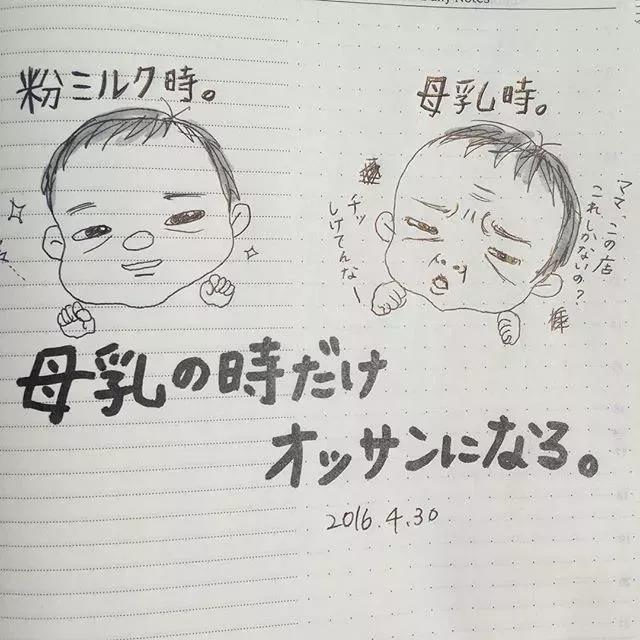 Daily Notes
粉ミルク時。
母乳時。
ママ、この店
これしかないの?
チッ
しけてんなー
母乳の時だけ
オッサンになる。
2016.4.30